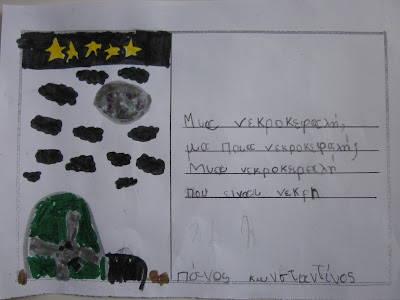 Μια νεκροκεφαλή,
μα ποια νεκροκεφαλή,
Μια νεκροκεφαλή
που είναι νεκρη
Πά-νος κωνσταντίνος